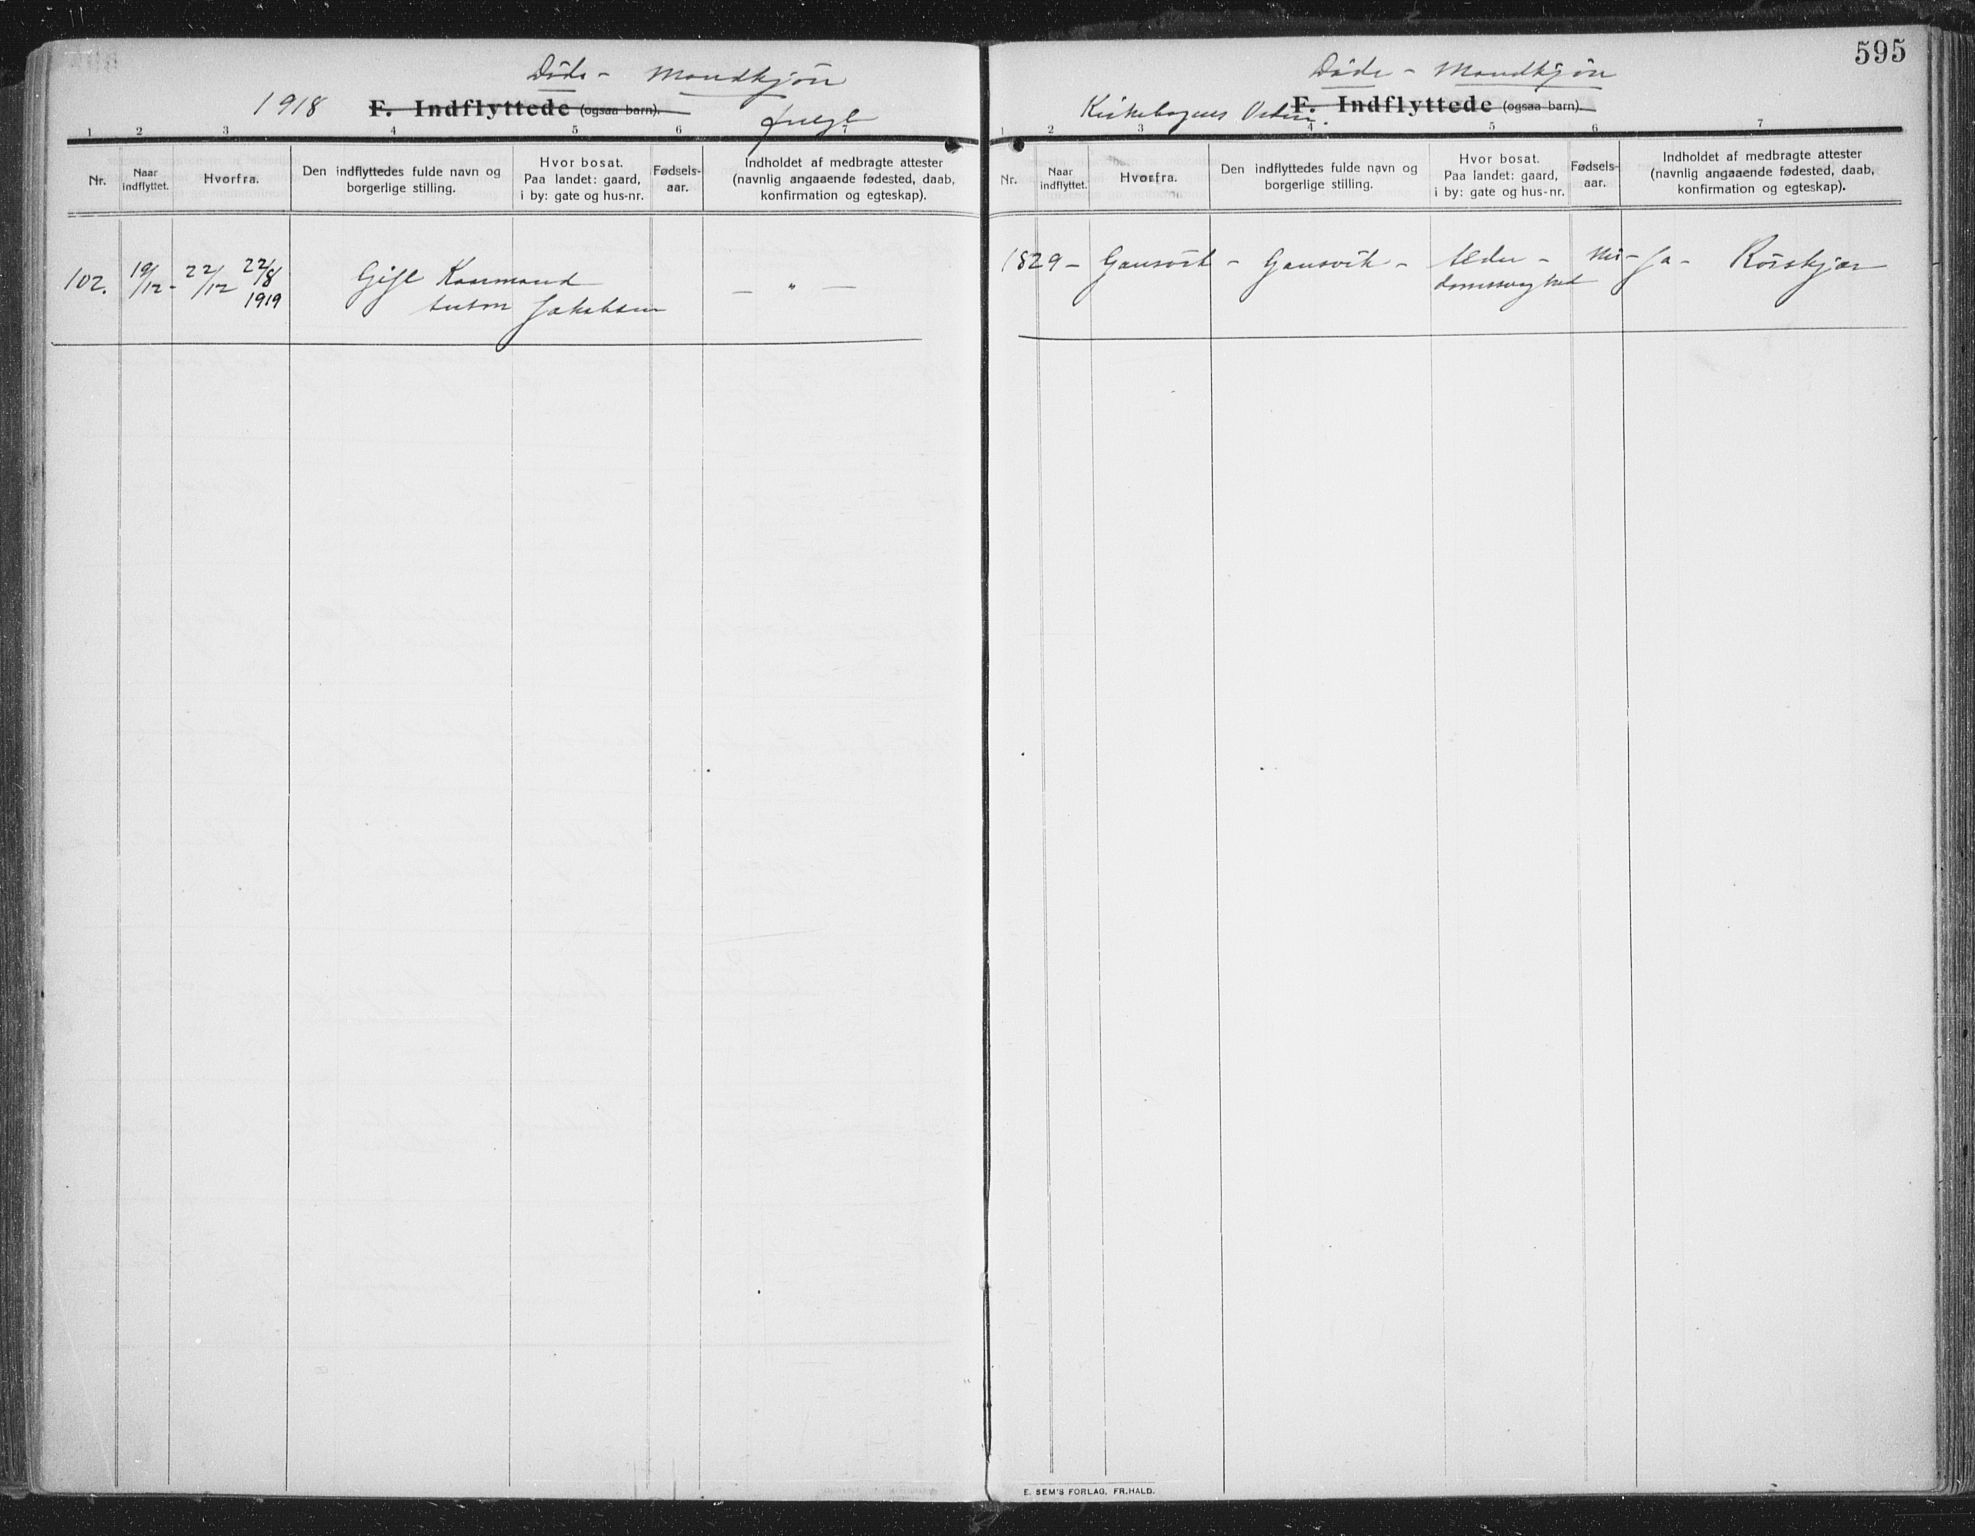 595
Døde - Mandkjøn
1918 F. Indflyttede (ogsaa barn).
1 2 3 4 5 6 7
Nr.
Naar
indflyttet.
Hvorfra.
Den indflyttedes fulde navn og
borgerlige stilling.
Hvor bosat.
Paa landet: gaard,
i by: gate og hus-nr.
Fødsels-
aar.
Indholdet af medbragte attester
(navnlig angaaende fødested, daab,
konfirmation og egteskap).
102. 19/12 - 22/12 22/8
1919
Gift Kaarmand
Anton Jakobsen
— " —
Døde - Mandkjøn
Kirkebogens Orden.
F. Indflyttede (ogsaa barn).
1 2 3 4 5 6 7
Nr.
Naar
indflyttet.
Hvorfra.
Den indflyttedes fulde navn og
borgerlige stilling.
Hvor bosat.
Paa landet: gaard,
i by: gate og hus-nr.
Fødsels-
aar.
Indholdet af medbragte attester
(navnlig angaaende fødested, daab,
konfirmation og egteskap).
1829 - Gausvik - Gausvik - Alder - Nei - Ja - Rørskjær
domssvaghed
E. SEM'S FORLAG, FR.HALD.